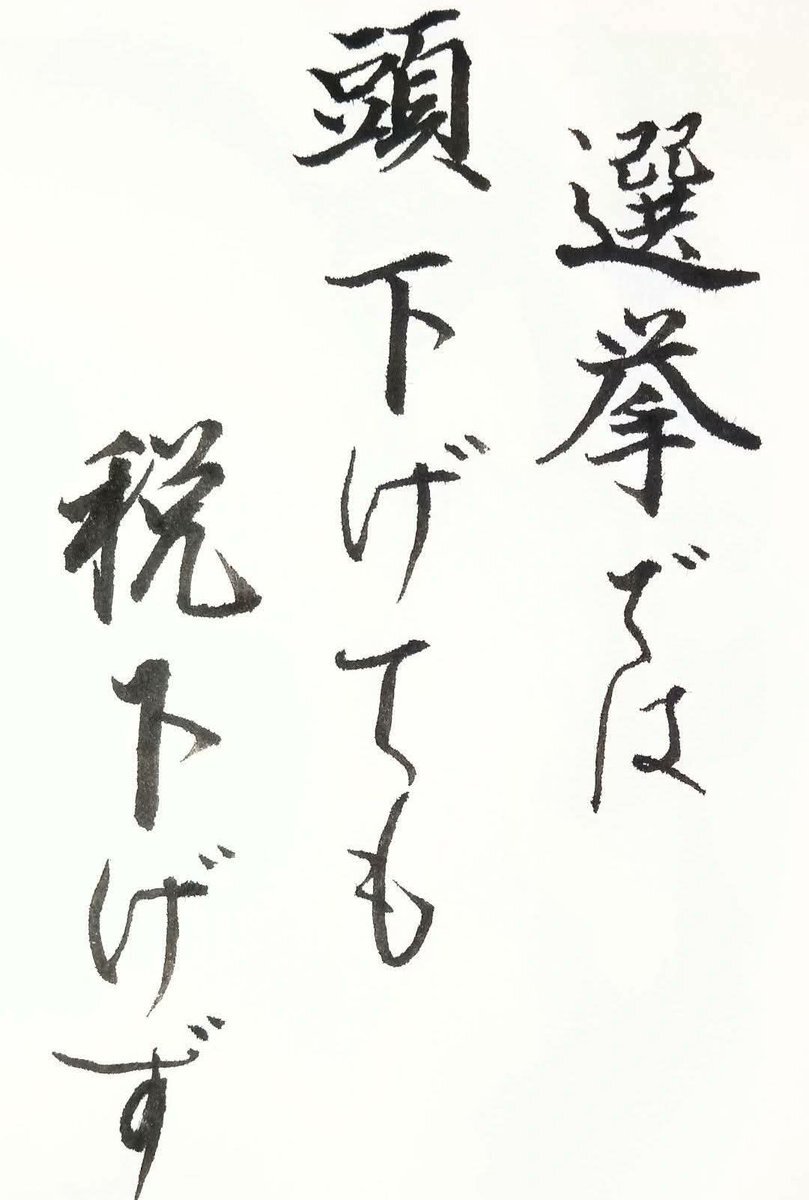 選挙では
頭下げても
税下げず